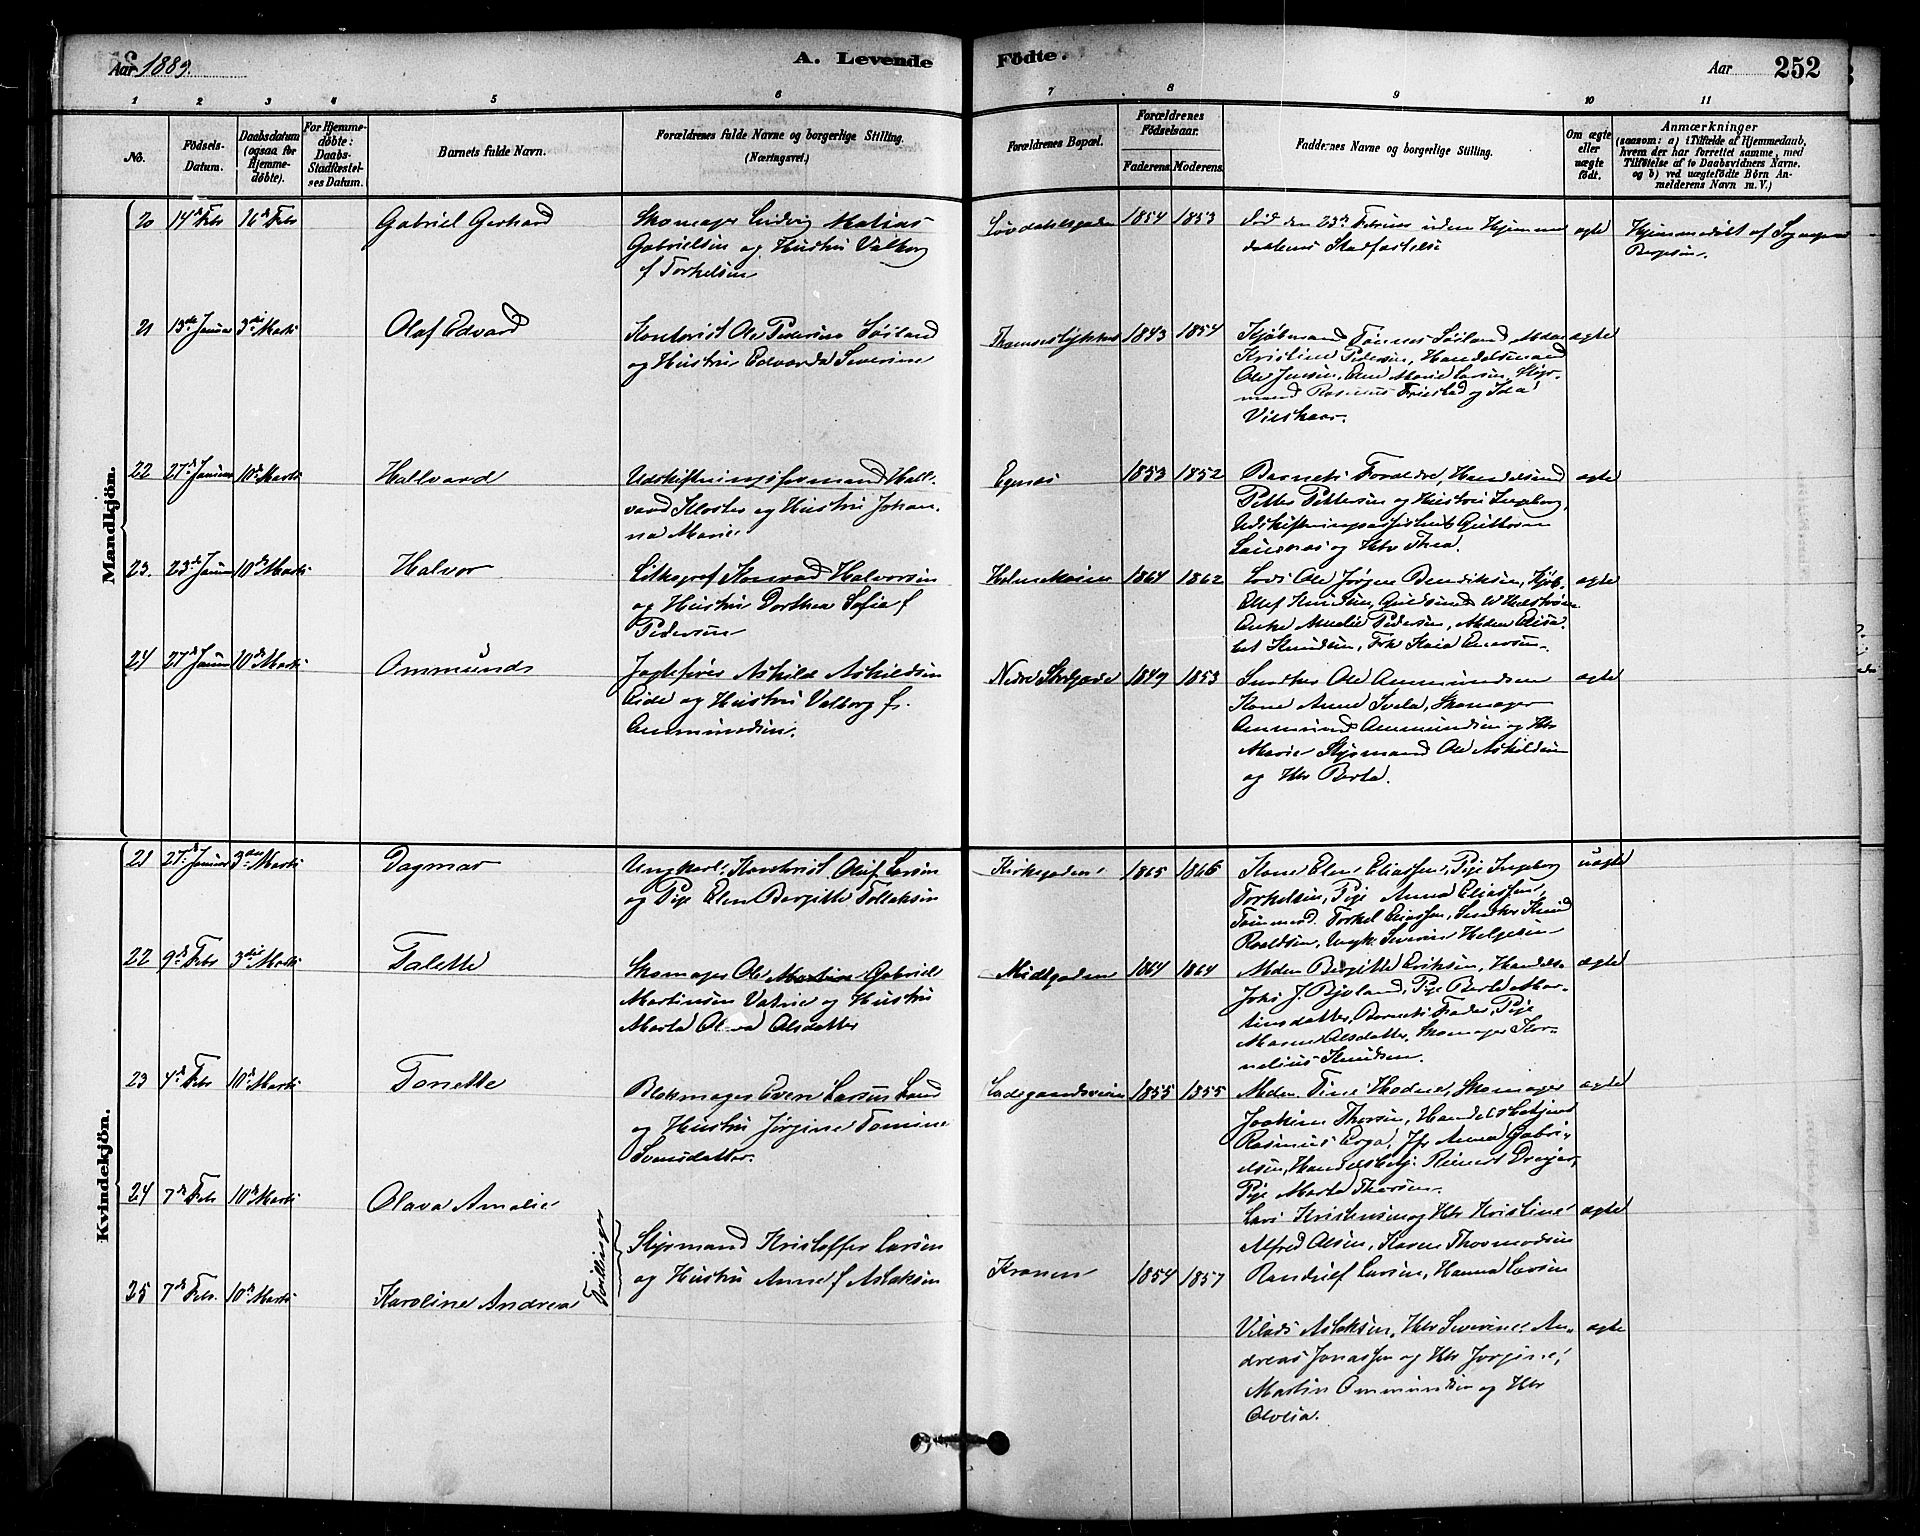 Aar 1889.
A. Levende
Födte.
Aar
252
1 2 3 4 5 6 7 8 9 10 11
No.
Födsels-
Datum.
Daabsdatum
(ogsaa for
Hjemme-
döbte).
For Hjemme-
döbte:
Daabs-
Stadfæstel-
ses Datum.
Barnets fulde Navn.
Forældrenes fulde Navne og borgerlige Stilling.
(Næringsvei.)
Forældrenes Bopæl.
Forældrenes
Födselsaar.
Faderens.
Moderens.
Faddernes Navne og borgerlige Stilling.
Om ægte
eller
uægte
födt.
Anmærkninger
(saasom: a) i Tilfælde af Hjemmedaab,
hvem der har forrettet samme, med
Tilföielse af to Daabsvidners Navne.
og b) ved uægtefödte Börn An-
melderens Navn m. V.)
Mandkjön.
20 14de Febr 16de Febr Gabriel Gerhard
Skomager Ludvig Matias
Gabrielsen og Hustru Valborg
f Torkelsen
Løvdahlsgaden 1854 1853
Død den 23de Februar uden Hjemme
daabens Stadfæstelse
ægte
Hjemmedøbt af Sognepr
Bergesen.
21 13de Januar 3die Marts Olaf Edvard
Kontorist Ole Pedersen Sørland
og Hustru Edvarda Severine
1843 1854
Kjøbmand Tønnes Sørland, Mdm
Kristine Pedersen, Handelsmand
Ole Jensen, Ane Marie Larsen, Styr-
mand Rasmus Friestad og Ida
ægte
22 27de Januar 10de Marts Hallvard
Udskiftningsformand Hall-
vard Kloster og Hustru Johan-
na Marie
Egenæs 1853 1852
Barnets Forældre, Handelsmd
Petter Pettersen og Hustru Ingeborg,
Udskiftningsassistent Guttorm
og Hstr Thea.
ægte
23. 23de Januar 10de Marts Halvor
Lithograf Konrad Halvorsen
og Hustru Dorthea Sofie f
Pedersen
1864 1862
Lods Ole Jørgen Bendiksen, Kjøb.
Ellef Knudsen, Guldsmed W
Enke Amalie Pedersen, Mdm Elisa-
bet Knudsen, Frk Kaia Enersen.
ægte
24 27de Januar 10de Marts Ommund
Jagtefører Askild Askildsen
Eide og Hustru Valborg f.
Ommundsen.
Nedre Skolgade 1849 1853
Snedker Ole Ommundsen
Kone Anne Svela, Skomager
Ommund Ommundsen og Hstr
Marie Styrmand Ole Askildsen
og Hstr Berta.
ægte
Kvindekjön.
21 27de Januar 3die Marts Dagmar
Ungkarl, Kontorist Oluf Larsen
og Pige Elen Bergitte Tollaksen
Kirkegaden 1865 1866
Kone Elen Eliassen, Pige Ingeborg
Torkelsen, Pige Anna Eliassen,
Tømmermd. Torkel Eliassen, Snedker Knud
Roaldsen, Ungk. Severin Helgesen
uægte
22 9de Febr 3die Marts Talette
Skomager Ole Martin Gabriel
Martinsen Vatne og Hustru
Marta Olava Olsdatter
Midtgaden 1864 1864
Mdm Birgitte Eriksen, Handels.
Johs J. Bjoland, Pige Berte Mar-
tinsdatter, Barnets Fader, Pige
Maren Olsdatter, Skomager Kor-
nelius Knudsen.
ægte
23 4de Febr 10de Marts Tonette
Blokmager Even Larsen Lund
og Hustru Jørgine Tomine
Svensdatter.
Ladegaardsveien 1855 1855
Mdm Tine Hodne, Skomager
Joakim Thorsen, Handelsbetjent
Rasmus Erga, Jfr Anna Gabri-
elsen, Handelsbetj. Reinert Dreyer,
Pige Marta Thorsen.
ægte
24 7de Febr 10de Marts Olava Amalie
Tvillinger
Styrmand Kristoffer Larsen
og Hustru Anne f Aslaksen
Kranen 1854 1857
Lars Kristensen og Hstr Kristine
Alfred Olsen, Karen Thormodsen
Randulf Larsen, Hanna Larsen
ægte
25 7de Febr. 10de Marts Karoline Andrea
Vilads Aslaksen, Hstr Severine, An-
dreas Jonassen og Hstr Jorgine,
Martin Ommundsen og Hstr
Olvlia.
ægte